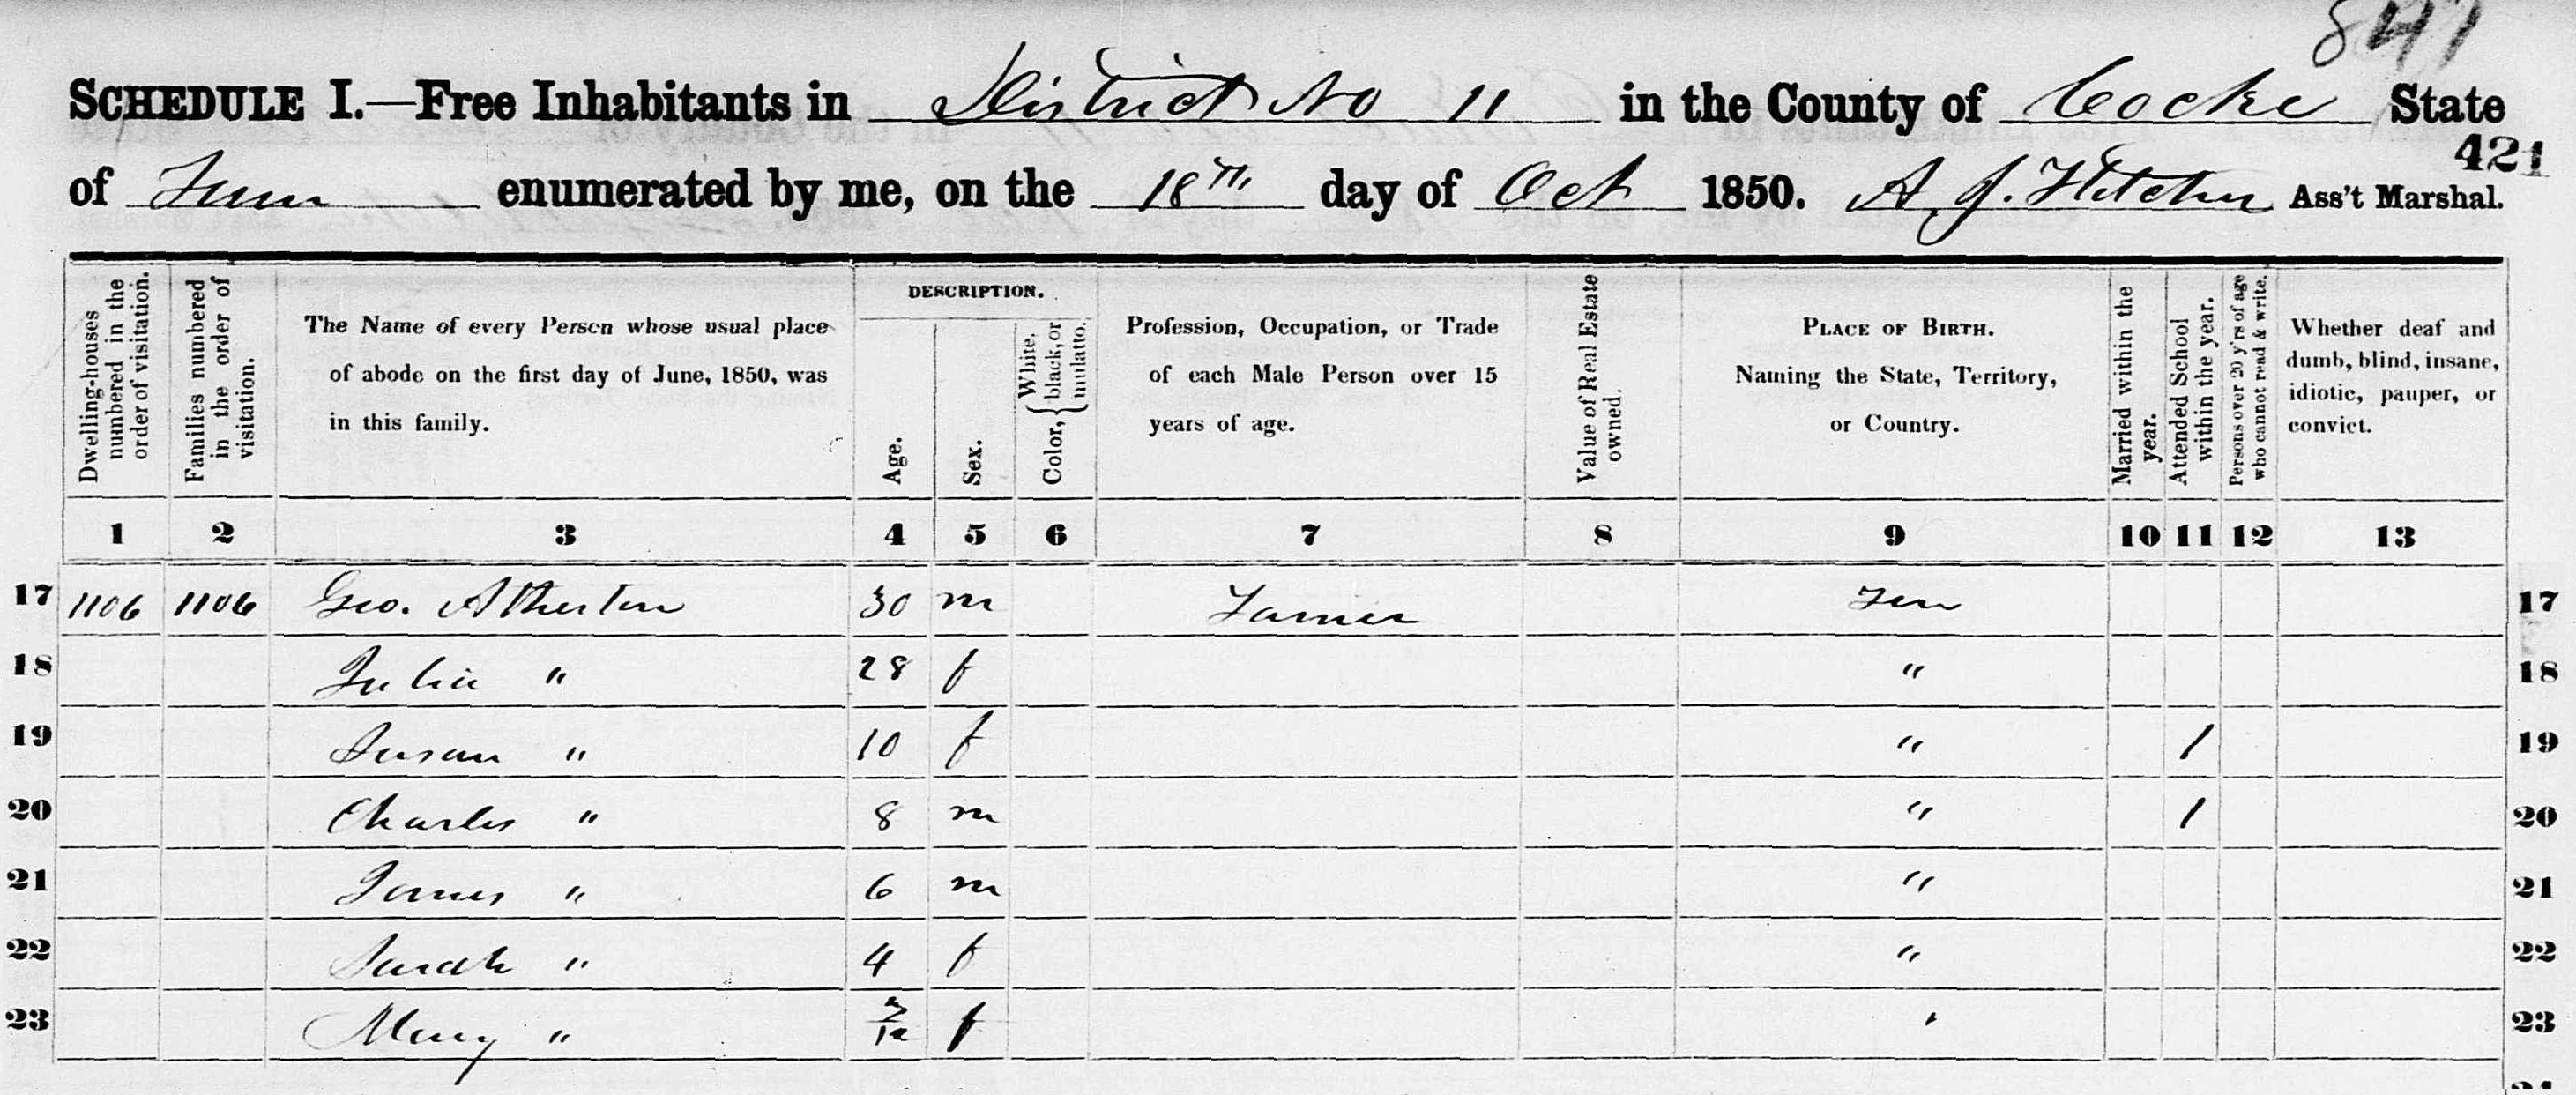 847
SCHEDULE I.—Free Inhabitants in District No 11 in the County of Cocke State
421
of Tenn enumerated by me, on the 18th day of Oct 1850. A. J. Fletcher Ass't Marshal.
Dwelling-houses numbered in the order of visitation.
Families numbered in the order of visitation.
The Name of every Person whose usual place of abode on the first day of June, 1850, was in this family.
DESCRIPTION.
Age.
Sex.
Color, { White, black, or mulatto.
Profession, Occupation, or Trade of each Male Person over 15 years of age.
Value of Real Estate owned.
PLACE OF BIRTH. Naming the State, Territory, or Country.
Married within the year.
Attended School within the year.
Persons over 20 y'rs of age who cannot read & write.
Whether deaf and dumb, blind, insane, idiotic, pauper, or convict.
1 2 3 4 5 6 7 8 9 10 11 12 13
17 1106 1106 Geo. Atherton 30 m Farmer Ten 17
18 Julia " 28 f " 18
19 Susan " 10 f " 1 19
20 Charles " 8 m " 1 20
21 James " 6 m " 21
22 Sarah " 4 f " 22
23 Mary " 3/12 f " 23